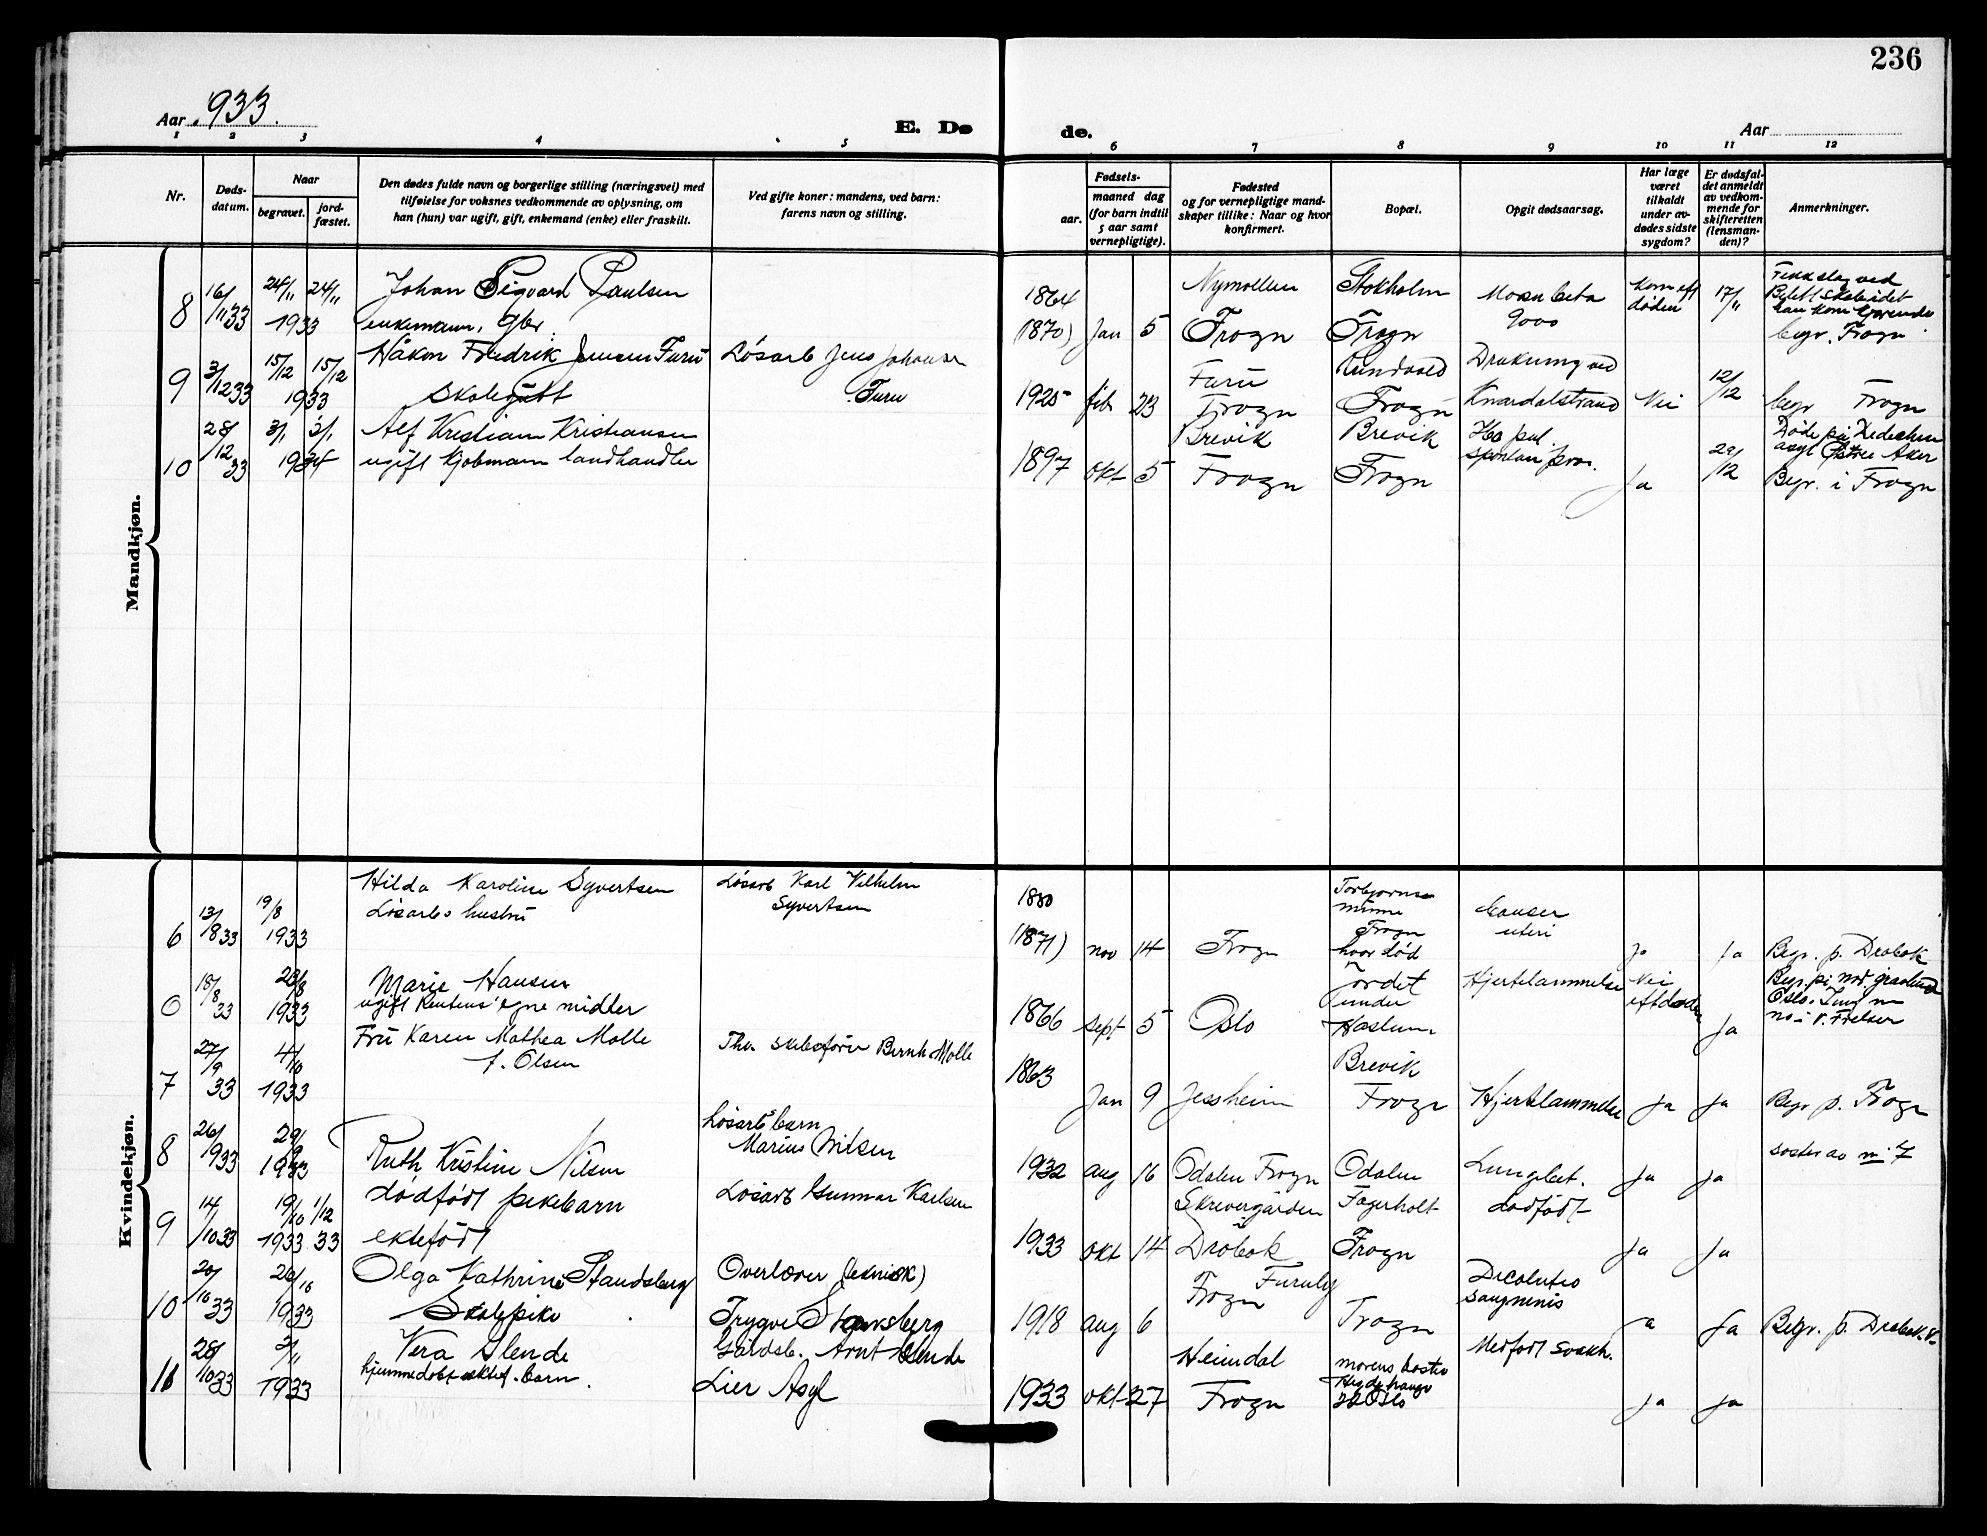 236
Aar 1933.
E. Dø
de.
Aar
1 2 3 4 5 6 7 8 9 10 11 12
Nr.
Døds-
datum.
Naar
begravet.
jord-
fæstet.
Den dødes fulde navn og borgerlige stilling (næringsvei) med
tilføielse for voksnes vedkommende av oplysning, om
han (hun) var ugift, gift, enkemand (enke) eller fraskilt.
Ved gifte koner: mandens, ved barn:
farens navn og stilling.
Fødsels-
aar.
maaned dag
(for barn indtil
5 aar samt
vernepligtige).
Fødested
og for vernepligtige mand-
skaper tillike: Naar og hvor
konfirmert.
Bopæl.
Opgit dødsaarsag.
Har læge
været
tilkaldt
under av-
dødes sidste
sygdom?
Er dødsfal-
det anmeldt
av vedkom-
mende for
skifteretten
(lensman-
den)?
Anmerkninger.
Mandkjøn.
8 16/11 33 24/11 1933 24/11
Johan Sigvard Paulsen
enkemann, gbr.
1864
(1870) Jan 5
Nymollen
Frogn
Stokholm
Frogn
Kom eft
døden
17/11
begr. Frogn
9 3/12 33 15/12 15/12 1933
Håkon Fredrik Jensen Furu
Skolegutt
Løsarb Jens Johansen
Furu
1925 feb 23
Furu
Frogn
Frogn
Drukning ved
Knardalstrand
Nei
12/12
begr Frogn
10 28/12 33 3/1 3/1 1934
Alf Kristian Kristiansen
ugift Kjøbmann landhandler
1897 okt 5
Brevik
Frogn
Brevik
Frogn
Ja
29/12
Døde på
Aker
Begr. i Frogn
Kvindekjøn.
6 13/8 33 19/8 1933
Hilda Karoline Syvertsen
Løsarb. hustru
Løsarb Karl Vilhelm
Syvertsen
1880
(1871) nov 14
Frogn
Torbjørns
minne
Frogn
hvor død
Cancer
uteri
Ja
Ja
Begr. p. Drøbak
0 18/8 33 23/8 1933
Marie Hansen
ugift egne midler
1866 sept 5
Oslo
Tordet
under
Haslum
Hjertelammelse
Nei
eft døden
Ja
7 27/9 33 4/10 1933
Fru Karen Mathea Molle
f. Olsen
Thv. skibsfører Bernh. Molle
1863 Jan 9
Jessheim
Brevik
Frogn
Hjertelammelse
Ja
Ja
Begr p. Frogn
8 26/9 33 29/9 1933
Ruth Kristine Nilsen
Løsarbs barn
Marius Nilsen
1932 aug 16
Odalen Frogn
Odalen
Lungebet.
Ja
Ja
søster av nr 7
9 14/10 33 19/10 1933 1/12 33
dødfødt pikebarn
ektefødt
Løsarb Gunnar Karlsen
1933 okt 14
Skrevergården
Drøbak
Fagerholt
Frogn
dødfødt
Ja
Ja
10 20/10 33 26/10 1933
Olga Kathrine
Skolepike
Overlærer (teknisk)
Trygve
1918 aug 6
Furuly
Frogn
Frogn
Ja
Ja
Begr. p. Drøbak
11 28/10 33 2/11 1933
Vera Slende
hjemmedøbt ektef. barn.
Gårdsb. Arnt Slende
Lier Asyl
1933 okt 27
Heimdal
Frogn
morens bosted
Oslo
Medfødt svakh.
Ja
Ja